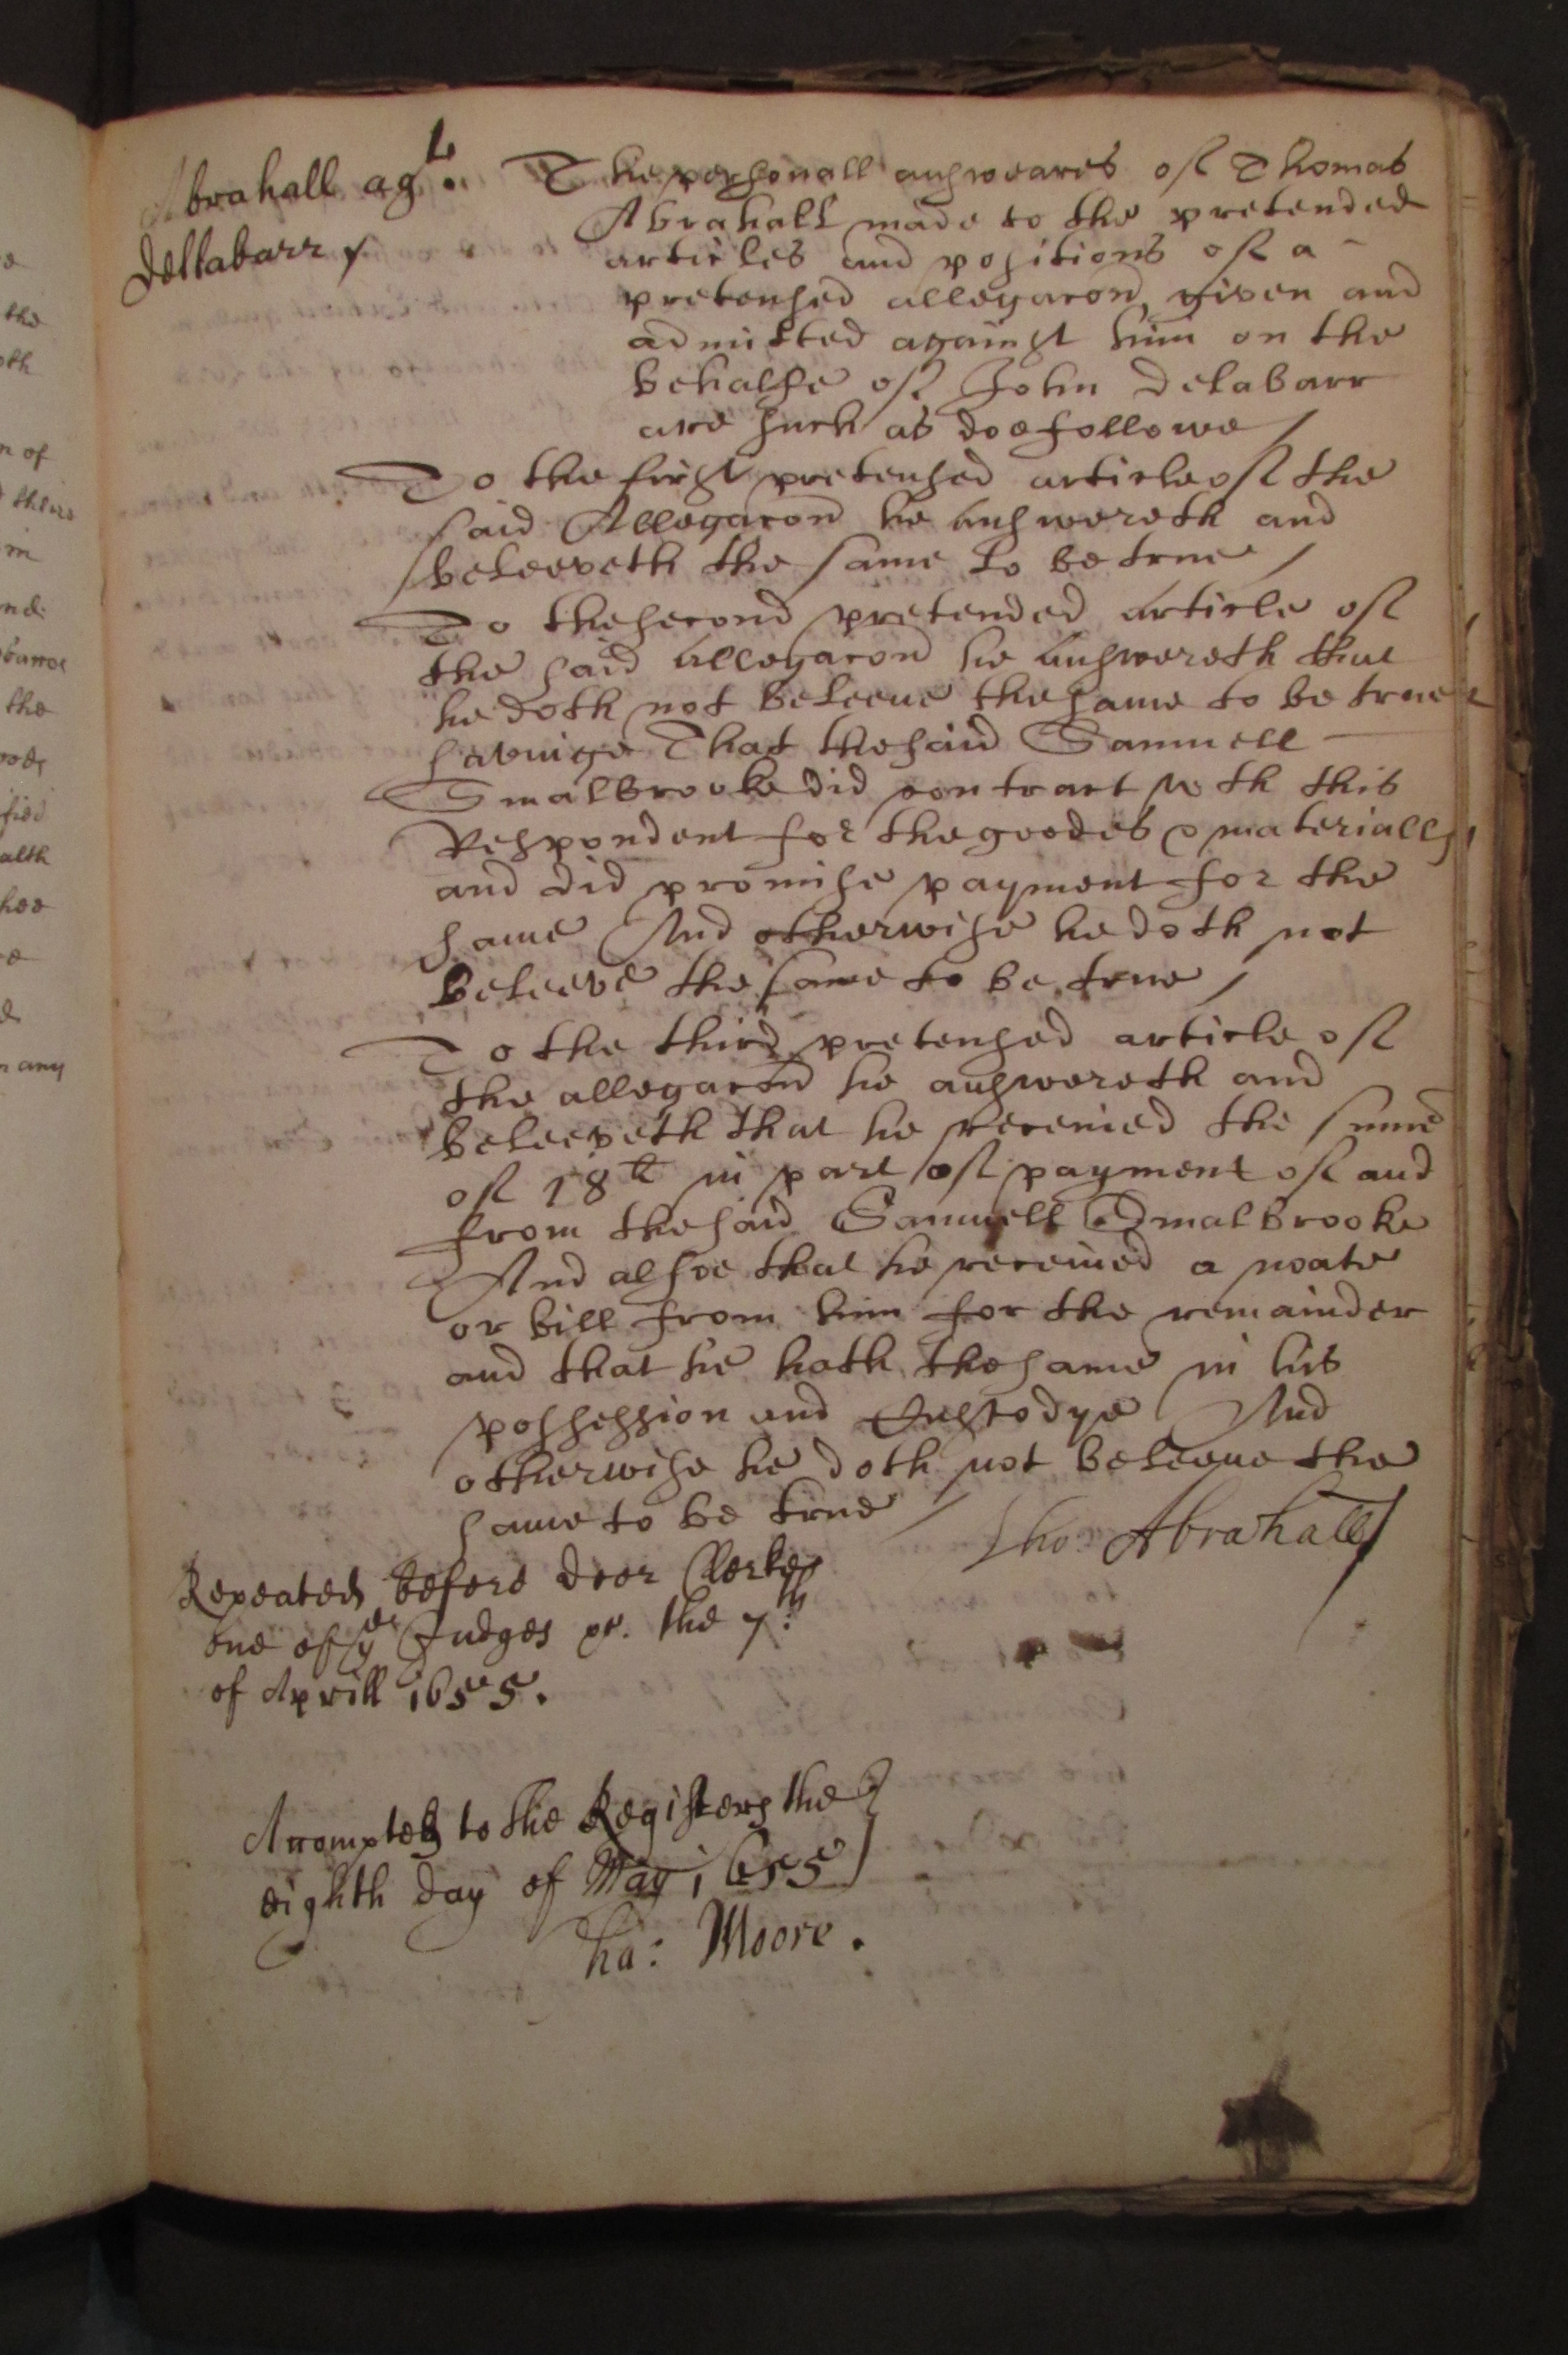 Abrahall agt.
Dellabarr /
The personall answeares of Thomas
Abrahall made to the pretended
articles and positions of a
pretensed allegacon given and
admitted against him on the
behalfe of John Delabarr
are such as doe followe /
To the first pretensed article of the
said Allegacon he answereth and
beleeveth the same to be true /
To the second pretended article of
the said allegacon he answereth that
he doth not beleeue the same to be true
savinge That the said Samuell
Smalbrooke did contract wth this
Respondent for the goodes & materialls
and did promise payment for the
same And otherwise he doth not
beleeve the same to be true /
To the third pretensed article of
the allegacon he answereth and
beleeveth that he receiued the sume
of 18 li in part of payment of and
from the said Samuell Smalbrooke
And alsoe that he receiued a noate
or bill from him for the remainder
and that he hath the same in his
possession and Custodye And
otherwise he doth not beleeue the
same to be true /
Tho: Abrahall
Repeated before docr Clerke
one of ye Judges &c. the 7th
of Aprill 1655.
the
oth
n of
theire
in
nd
the
oods
alth
hee
n any
to the Registers the
eighth day of May 1655
Tho: Moore.